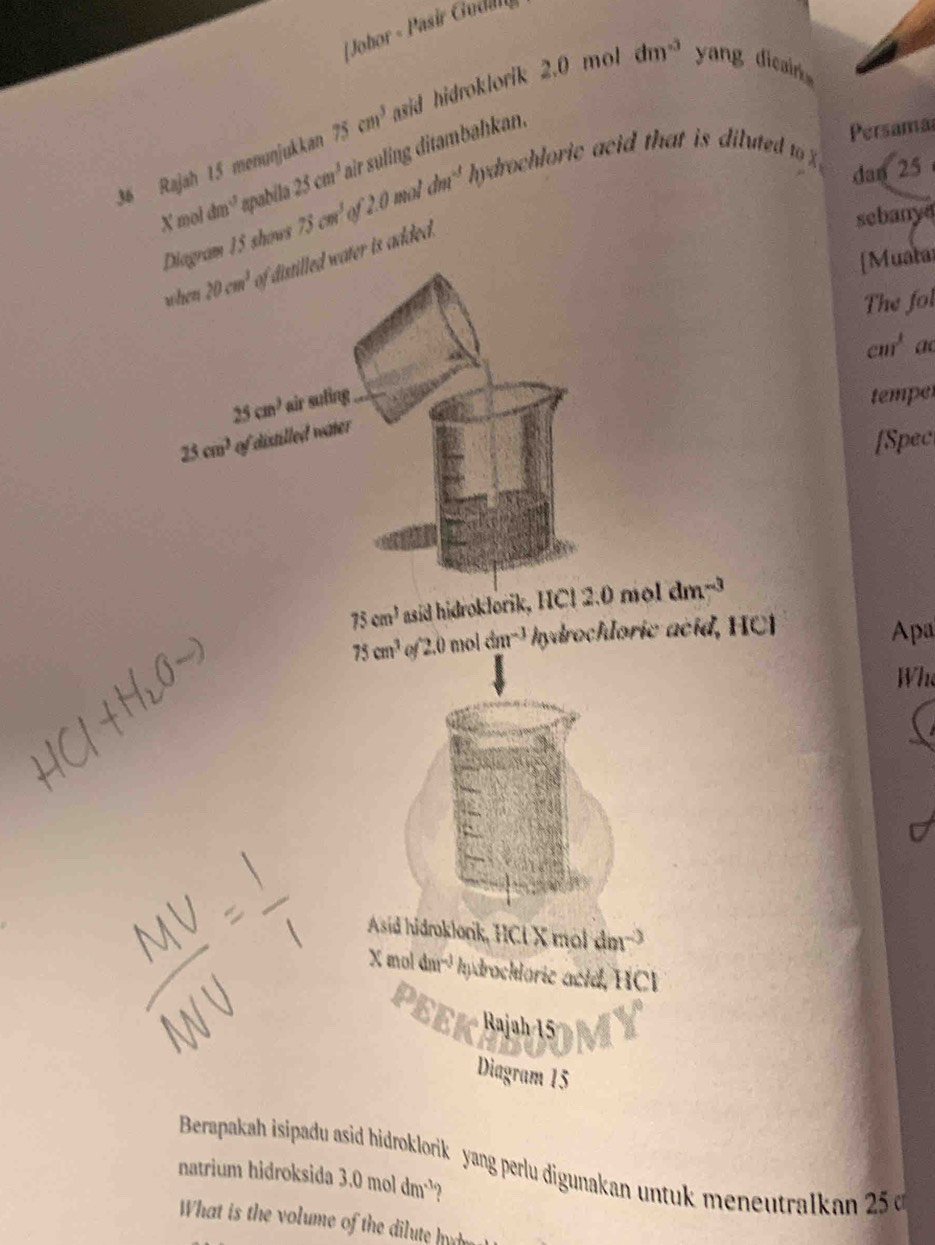 [Johor - Pasir
36 Rajah 15 menunjukkan 75 cm³ asid hidroklorik 2.0 mol dm⁻³ yang
X mol dm⁻³ apabila 25 cm³ air suling ditambahkan.
Diagram 15 shows 75 cm³ of 2.0 mol dm⁻³ hydrochloric acid that is diluted to X
when 20 cm³ of distilled water is added.
25 cm³ air suling
25 cm³ of distilled water
75 cm³ asid hidroklorik, HCl 2.0 mol dm⁻³
75 cm³ of 2.0 mol dm⁻³ hydrochloric acid, HCl
HCl + H₂O →
MV/MV = 1/1
Asid hidroklorik, HCl X mol dm⁻³
X mol dm⁻³ hydrochloric acid, HCl
PEEKABOOMY
Rajah 15
Diagram 15
Berapakah isipadu asid hidroklorik yang perlu digunakan untuk meneutralkan 25
natrium hidroksida 3.0 mol dm⁻³?
What is the volume of the dilute
dan 25
The
cm³
[Spec
Apa